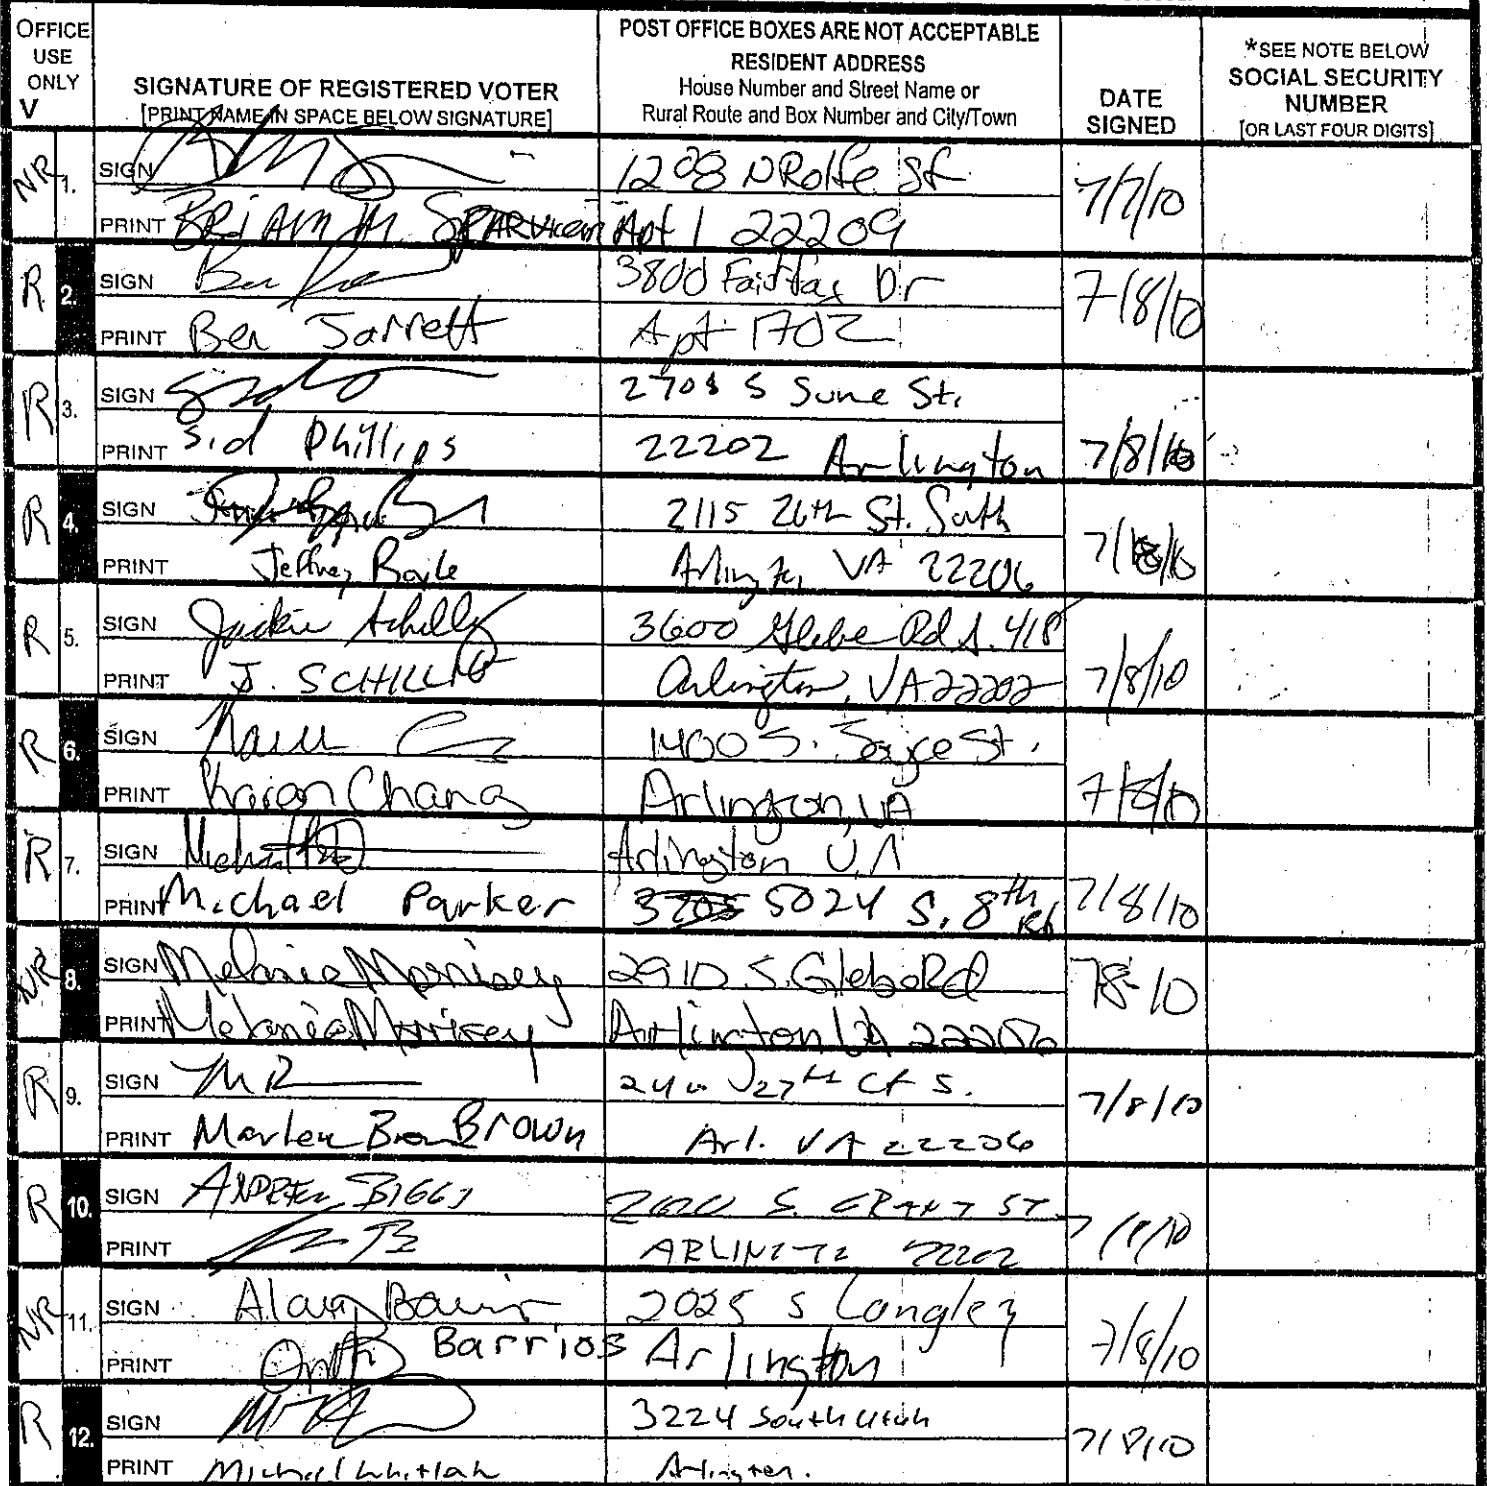 OFFICE USE ONLY V
SIGNATURE OF REGISTERED VOTER
[PRINT NAME IN SPACE BELOW SIGNATURE]
POST OFFICE BOXES ARE NOT ACCEPTABLE
RESIDENT ADDRESS
House Number and Street Name or
Rural Route and Box Number and City/Town
DATE SIGNED
*SEE NOTE BELOW
SOCIAL SECURITY NUMBER
[OR LAST FOUR DIGITS]
NR 1. SIGN 1208 N Rolfe St 7/7/10
PRINT Brian M. Apt 1 22209
R 2. SIGN Ben 3800 Fairfax Dr 7/8/10
PRINT Ben Jarrett Apt 1702
R 3. SIGN 2708 S June St. 7/8/10
PRINT Sid Phillips 22202 Arlington
R 4. SIGN 2115 26th St. South
PRINT Jeffrey Arlington, VA 22206
R 5. SIGN Jackie 3600 Glebe Rd S. 418 7/8/10
PRINT J. SCHILLING Arlington, VA 22202
R 6. SIGN 1400 S. Joyce St. 7/8/10
PRINT Chang Arlington, VA
R 7. SIGN Arlington VA 7/8/10
PRINT Michael Parker 5024 S. 8th Rd
NR 8. SIGN Melanie Morrisey 2910 S. Glebe Rd 7-8-10
PRINT Melanie Morrisey Arlington VA 22206
R 9. SIGN 27th Ct S. 7/8/10
PRINT Brown Arl. VA 22206
R 10. SIGN ANDREW BIGGS S. GRANT ST 7/8/10
PRINT 22202
NR 11. SIGN Alan 2025 S Langley 7/8/10
PRINT Barrios Arlington
R 12. SIGN 3224 South Utah 7/8/10
PRINT Michael Arlington.